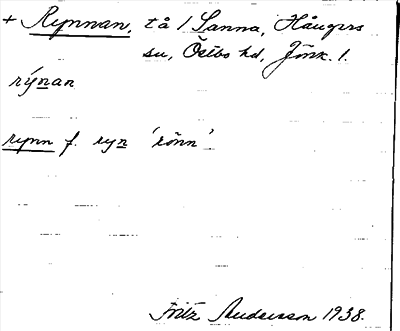 + Rynnan, tå 1 Sanna, Hångers
sn, Östbo hd, Jönk. l.
rýnan
rynn f. ryn 'rönn'
Fritz Andersson 1938.